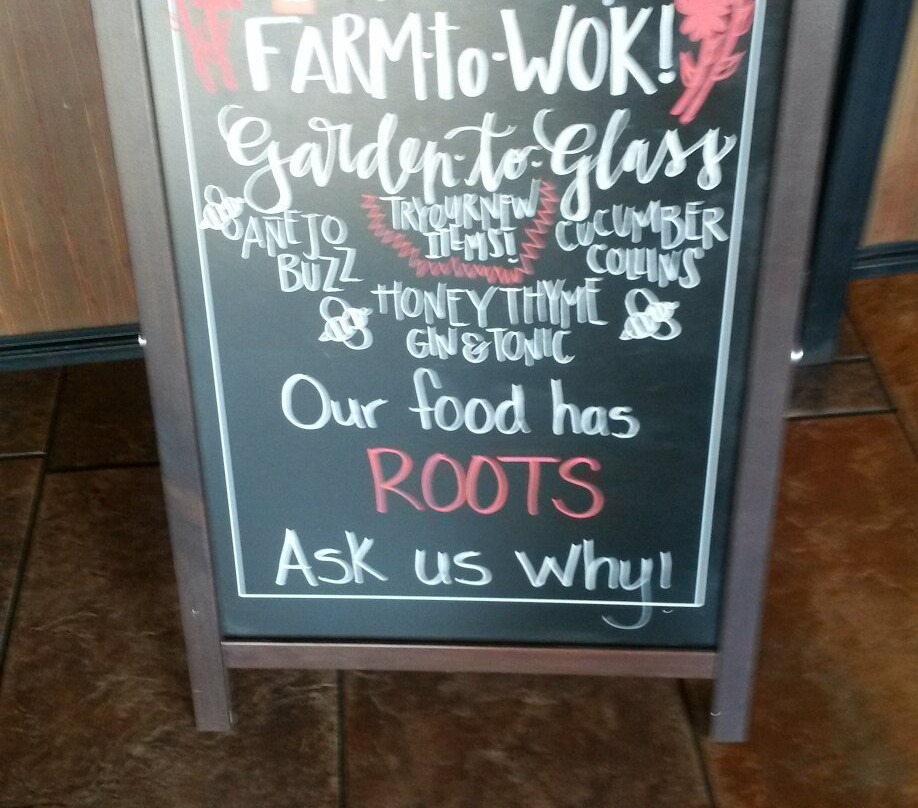 FARM-to-WOK!
Garden-to-Glass
TRY OUR NEW
ITEMS!
AÑEJO
BUZZ
CUCUMBER
COLLINS
HONEY THYME
GIN & TONIC
Our food has
ROOTS
Ask us why!